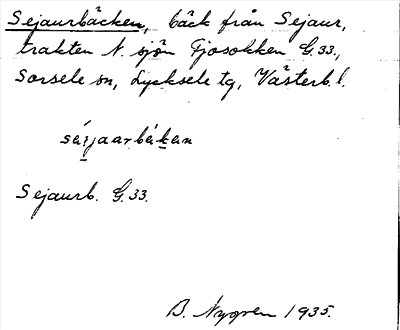 Sejaurbäcken, bäck från Sejaur,
trakten N. sjön Gjosokken G.33.,
Sorsele sn, Lycksele tg, Västerb. l.
Sejaurb. G.33.
B. Nygren 1935.